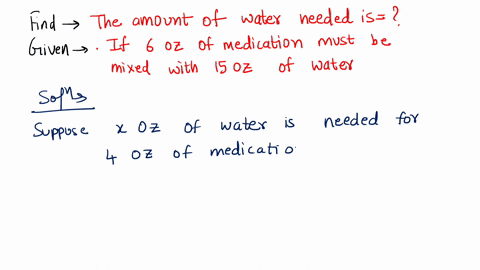 Find → The amount of water needed is = ?
Given → · If 6 oz of medication must be
mixed with 15 oz of water
Soln
Suppose x oz of water is needed for
4 oz of medicatio